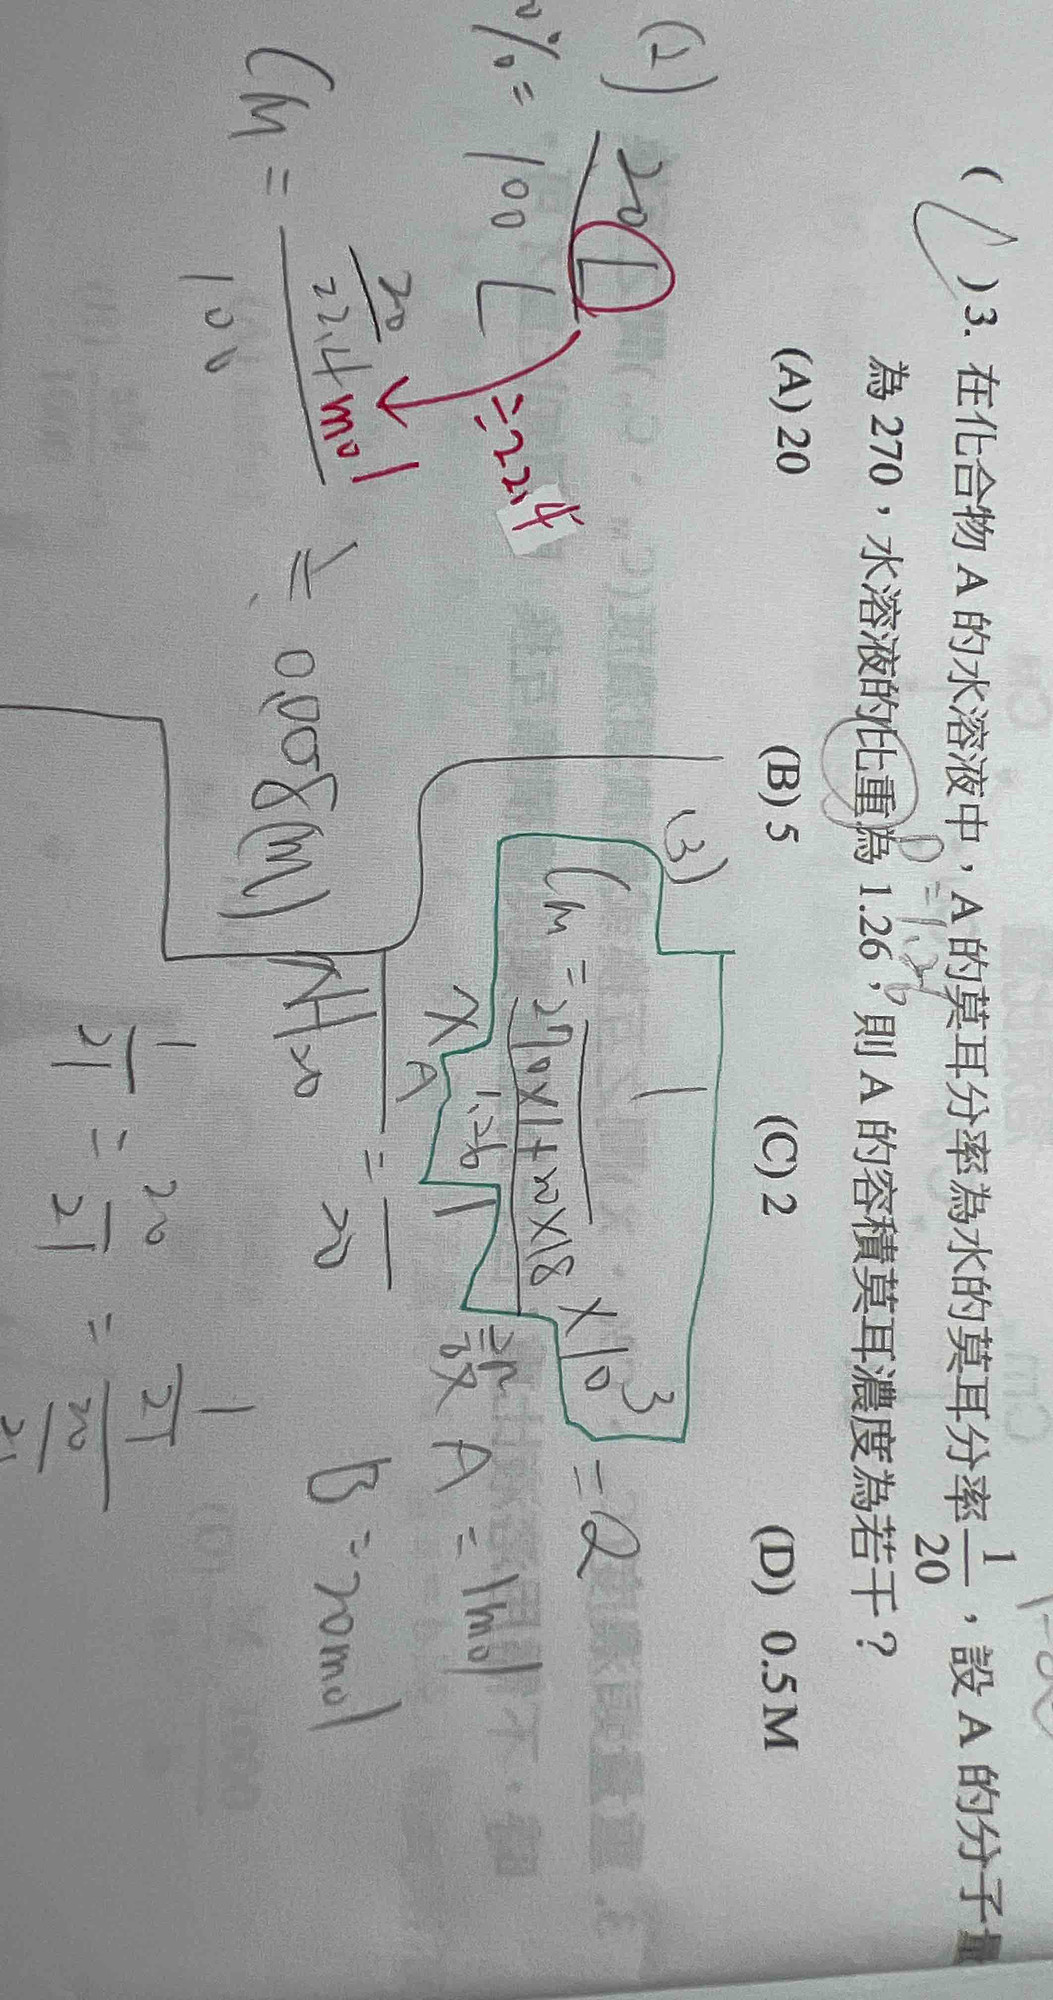 ( C )3. 在化合物 A 的水溶液中，A 的莫耳分率為水的莫耳分率 1/20，設 A 的分子量
為 270，水溶液的比重為 1.26，則 A 的容積莫耳濃度為若干？
D=1.26
(A) 20 (B) 5 (C) 2 (D) 0.5 M
(2)
20 L
% = 100 L
= 22.4
CM = 20/22.4 mol / 100 ≒ 0.008 (M)
(3)
CM = 1 / (270×1+20×18 / 1.26) × 10³ = 2
XA / XH20 = 1/20
A = 1mol
B = 20mol
1/21 = 20/21 = 1/21 / 20/21